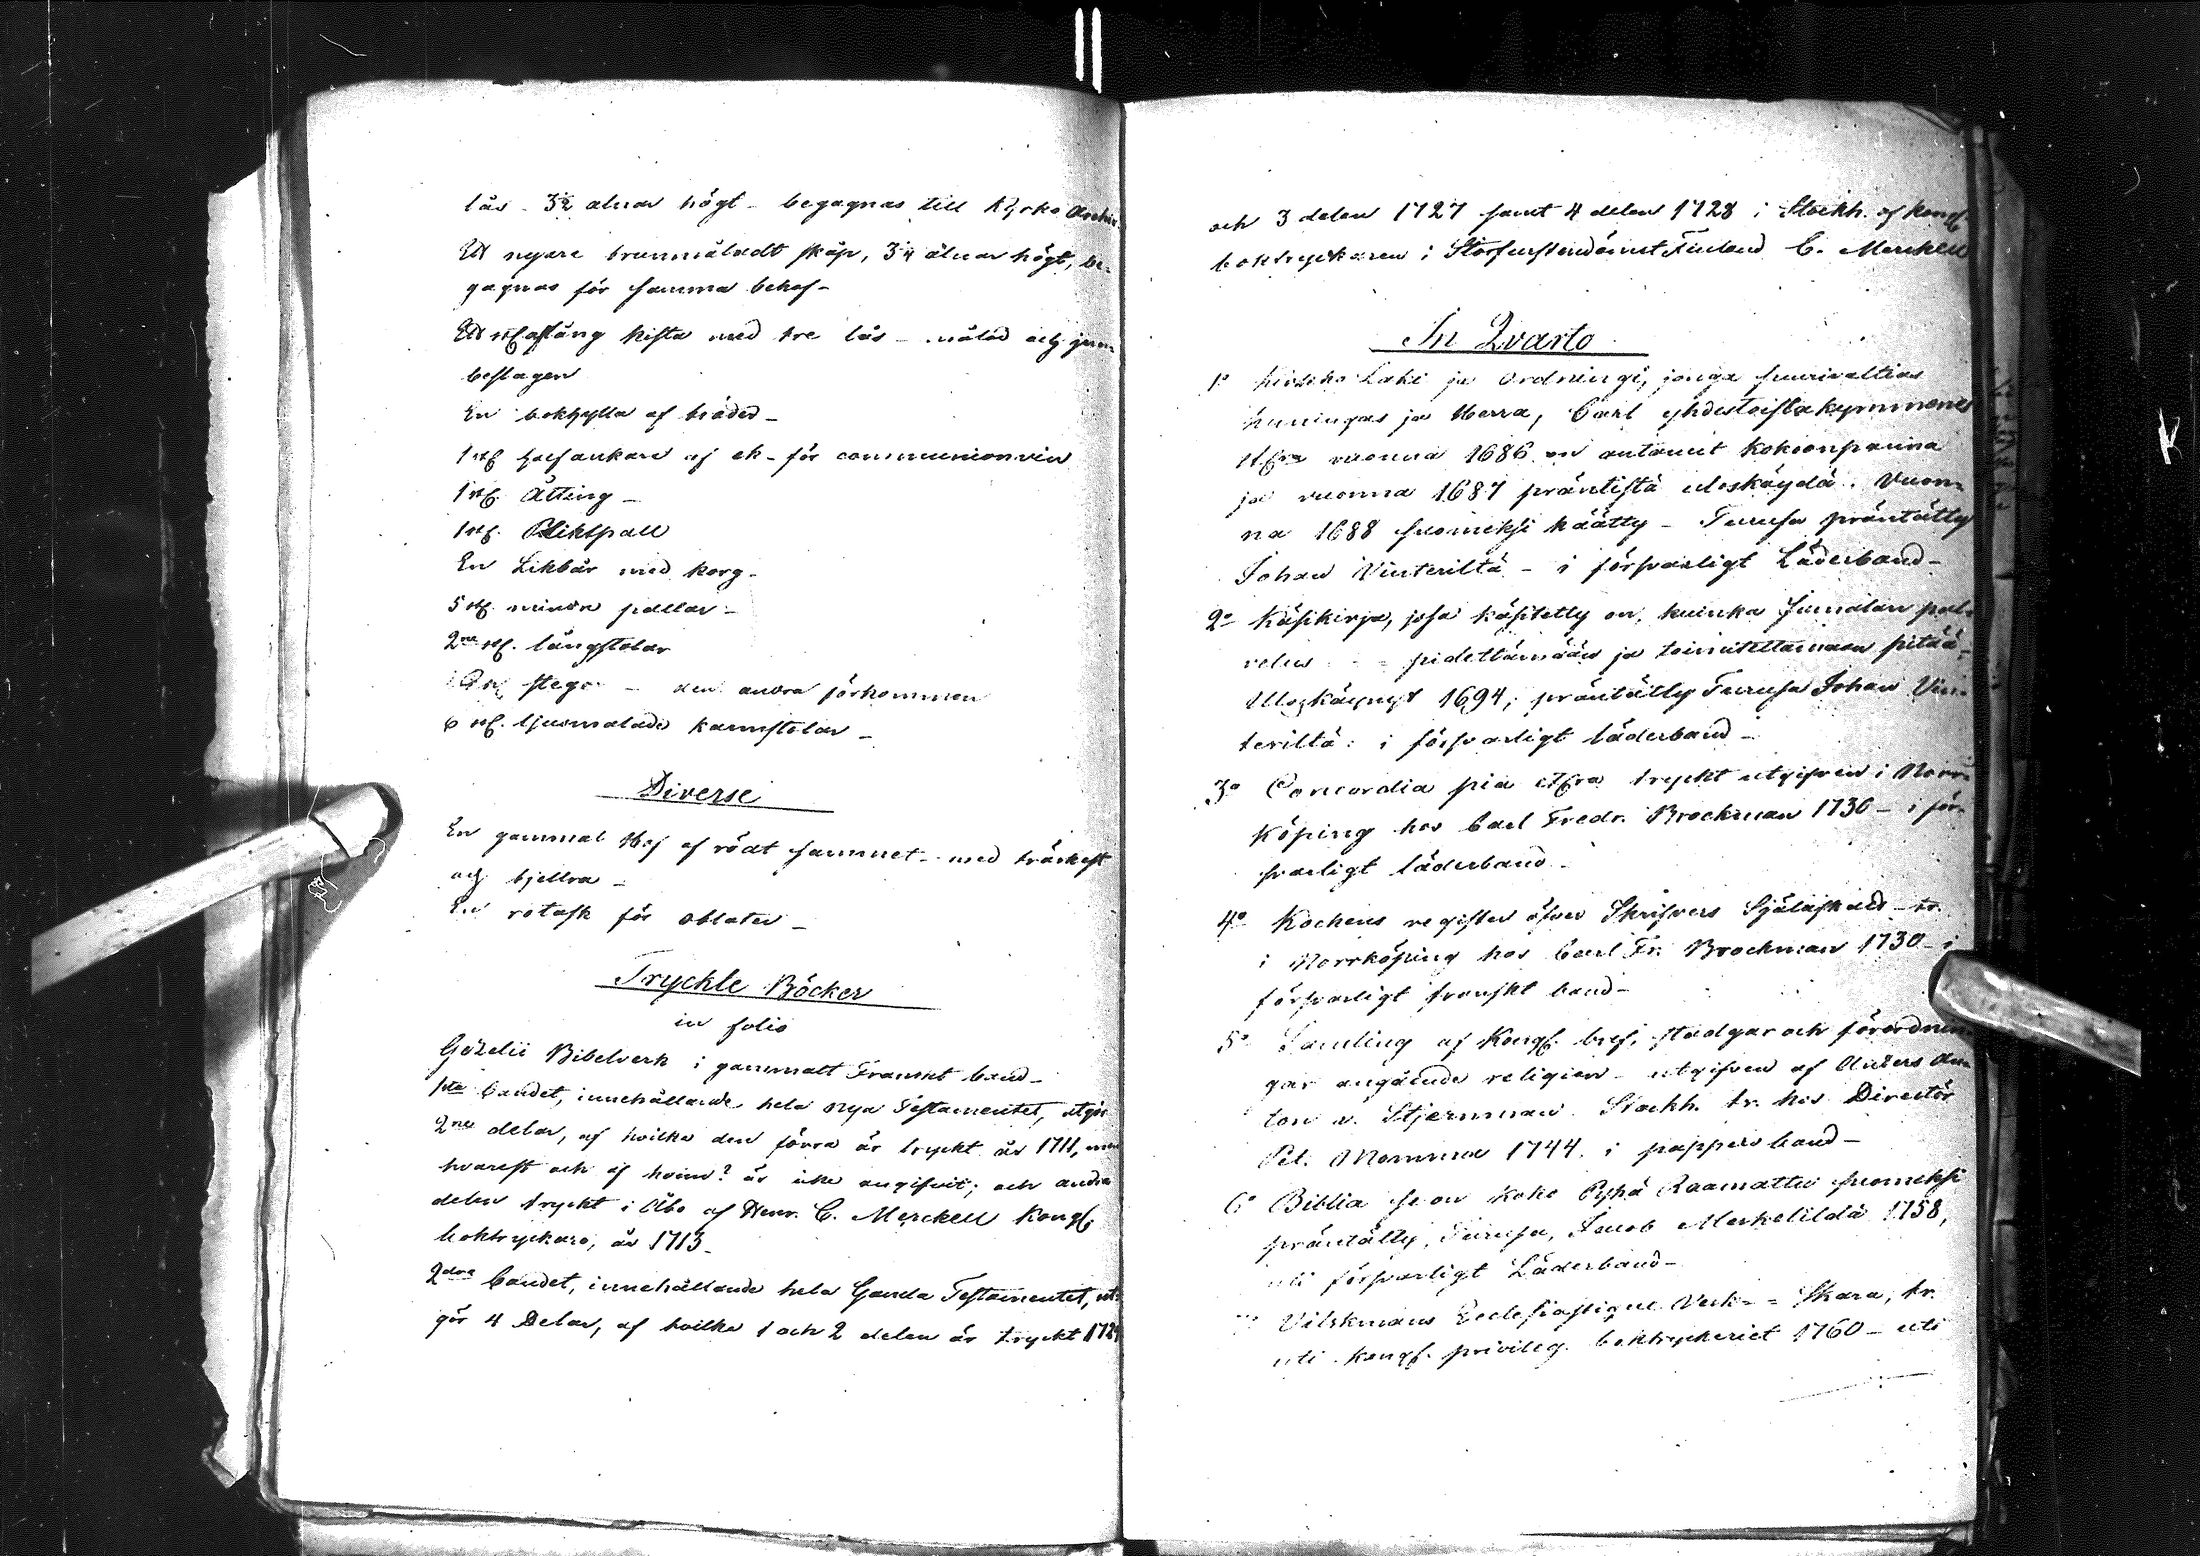 lås - 3½ alnar högt - begagnas till Kyrko Archiv
Ett nyare brunmåladt skåp, 3¼ alnar högt, be-
gagnas för samma behof -
aflång kista med tre lås - målad och jern
beslagen
En bokhylla af bräder -
1 st. halfankare af ek - för communionvin
1 st. Åtting -
1 st. Pliktpall
En Likbår med korg -
5 st. mindre pallar -
2ne st. långstolar
stegar - den andra förkommen
6 st. ljusmålade karmstolar -
Diverse
En gammal Håf af rödt sammet - med träskaft
och bjellra -
En ask för oblater -
Tryckte Böcker
in folio
Gezelii Bibelverk i gammalt Franskt band -
1sta bandet, innehållande hela nya Testamentet, utgör
2ne delar, af hvilka den förra är tryckt år 1711, men
hvarest och af hvem? är icke angifvit; och andra
delen tryckt i Åbo af Henr. C. Merckell Kongl.
boktryckare, år 1713 -
2dra bandet, innehållande hela Gamla Testamentet, ut-
gör 4 Delar, af hvilka 1 och 2 delen är tryckt 1724
och 3 delen 1727 samt 4 delen 1728 i Stockh. af kongl.
boktryckaren i Storfurstendömet Finland C. Merckell
In Qvarto
1o Kircko Laki ja Ordningi, jonga suurivaltias
kuningas ja Herra, Carl yhdestoistakymmenes
vuonna 1686 on antanut kokoonpanna
ja vuonna 1687 präntistä uloskäydä. Vuon-
na 1688 suomeksi käätty - Turusa präntätty
Johan Vinterildä - i försvarligt Läderband -
2o Käsikirja, josa käsitetty on, kuinka Jumalan pal-
velus - = pidettämään ja toimitettaman pitää -
Uloskäynyt 1694, präntätty Turusa Johan Vin-
terildä: i försvarligt läderband -
3o Concordia pia tryckt utgifven i Norr-
köping hos Carl Fredr. Brockman 1730 - i för-
svarligt läderband -
4o Kochens register öfver Skrifvers Själaskatt - tr.
i Norrköping hos Carl Fr. Brockman 1730 - i
försvarligt franskt band -
5o Samling af Kongl. bref, stadgar och förordnin-
gar angående religion - utgifven af Anders An-
ton v. Stjernman. Stockh. tr. hos Directör
Pet. Momma 1744. i pappers band -
6o Biblia se on Koko Pyhä Raamattu suomeksi
präntätty, Turusa, Jacob Merkelildä 1758,
uti försvarligt Läderband -
Vilskmans Ecclesiastique Verk - = Skara, tr.
uti kongl. privileg. boktryckeriet 1760 - uti